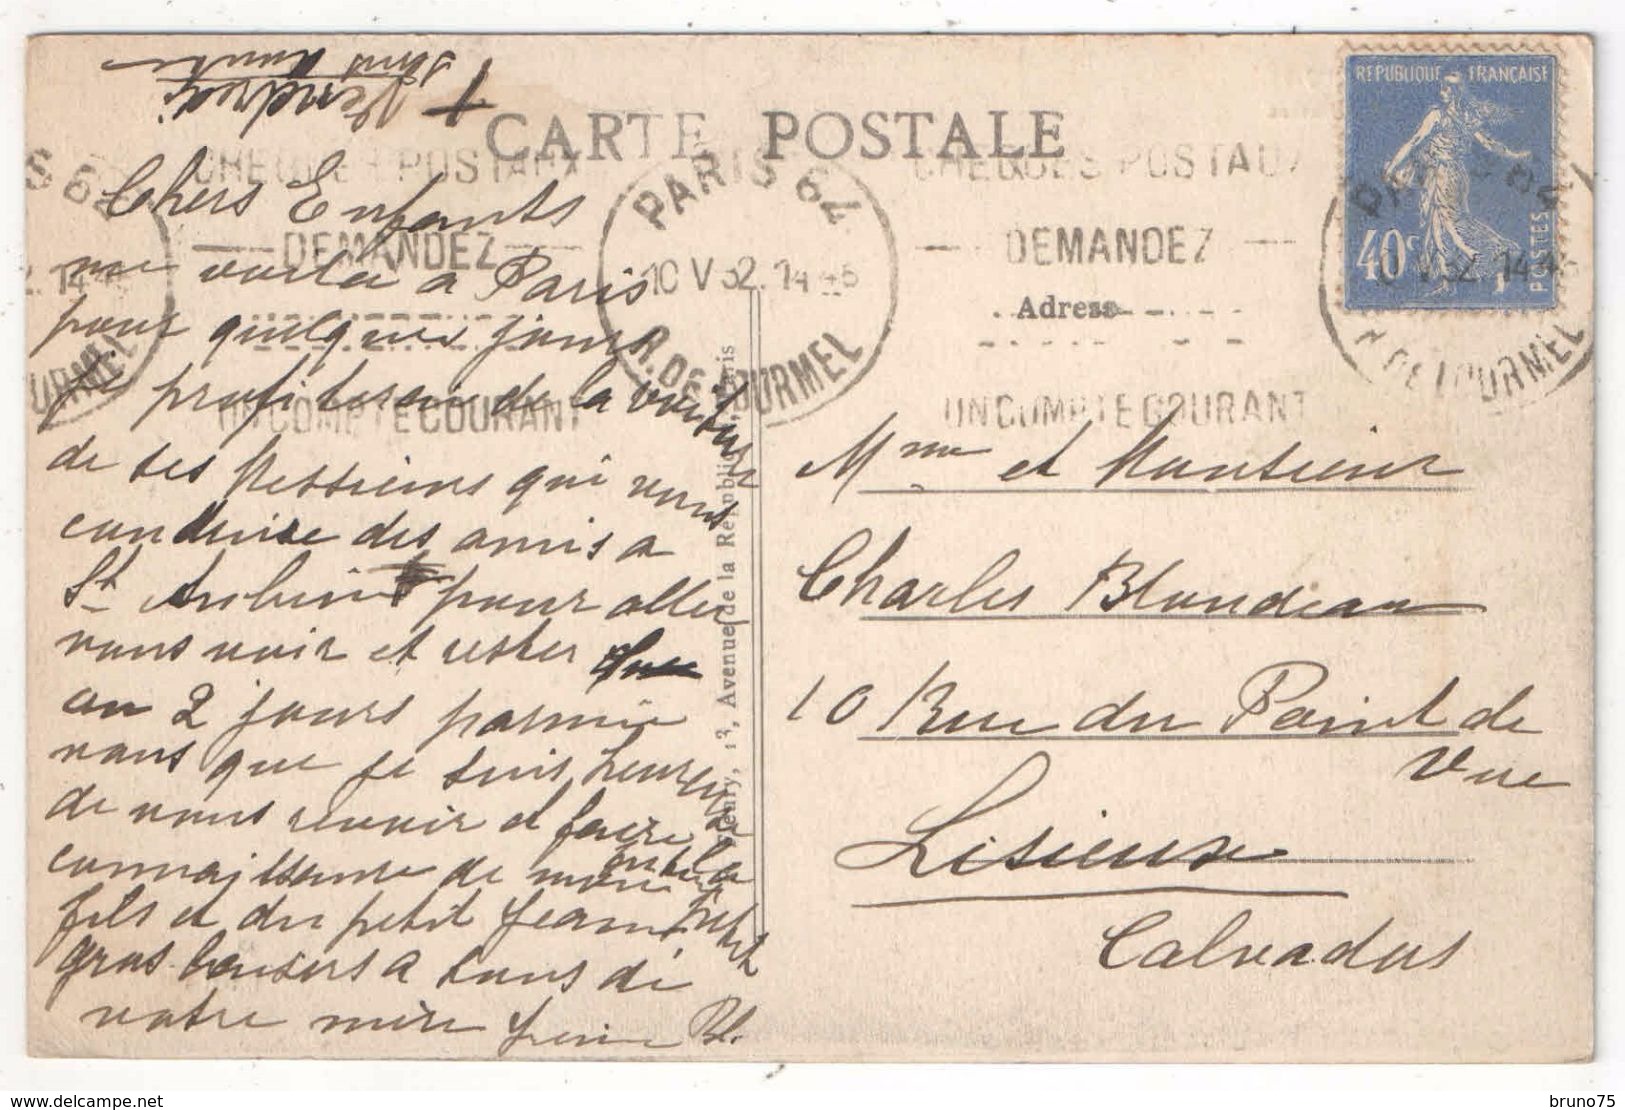 Vendredi
CARTE POSTALE
REPUBLIQUE FRANÇAISE
40c
POSTES
CHEQUES POSTAUX
DEMANDEZ
UN COMPTE COURANT
PARIS 64
10 V 32. 14
R. DE LOURMEL
CHEQUES POSTAUX
DEMANDEZ
UN COMPTE COURANT
Adresse
Chers Enfants
me voila a Paris
pour quelques jours
je profiterai de la voiture
de ses Messieurs qui vont
conduire des amis a
St Aubin pour aller
vous voir et rester
un 2 jours parmi
vous que je suis heureuse
de vous revoir et faire
connaissance de mon
fils et du petit Jean
gros baisers a tous de
votre mère Bl.
Fleury, 13, Avenue de la République, Paris
Mme et Monsieur
Charles Blondeau
10 Rue du Point de
Vue
Lisieux
Calvados
delcampe.net
bruno75